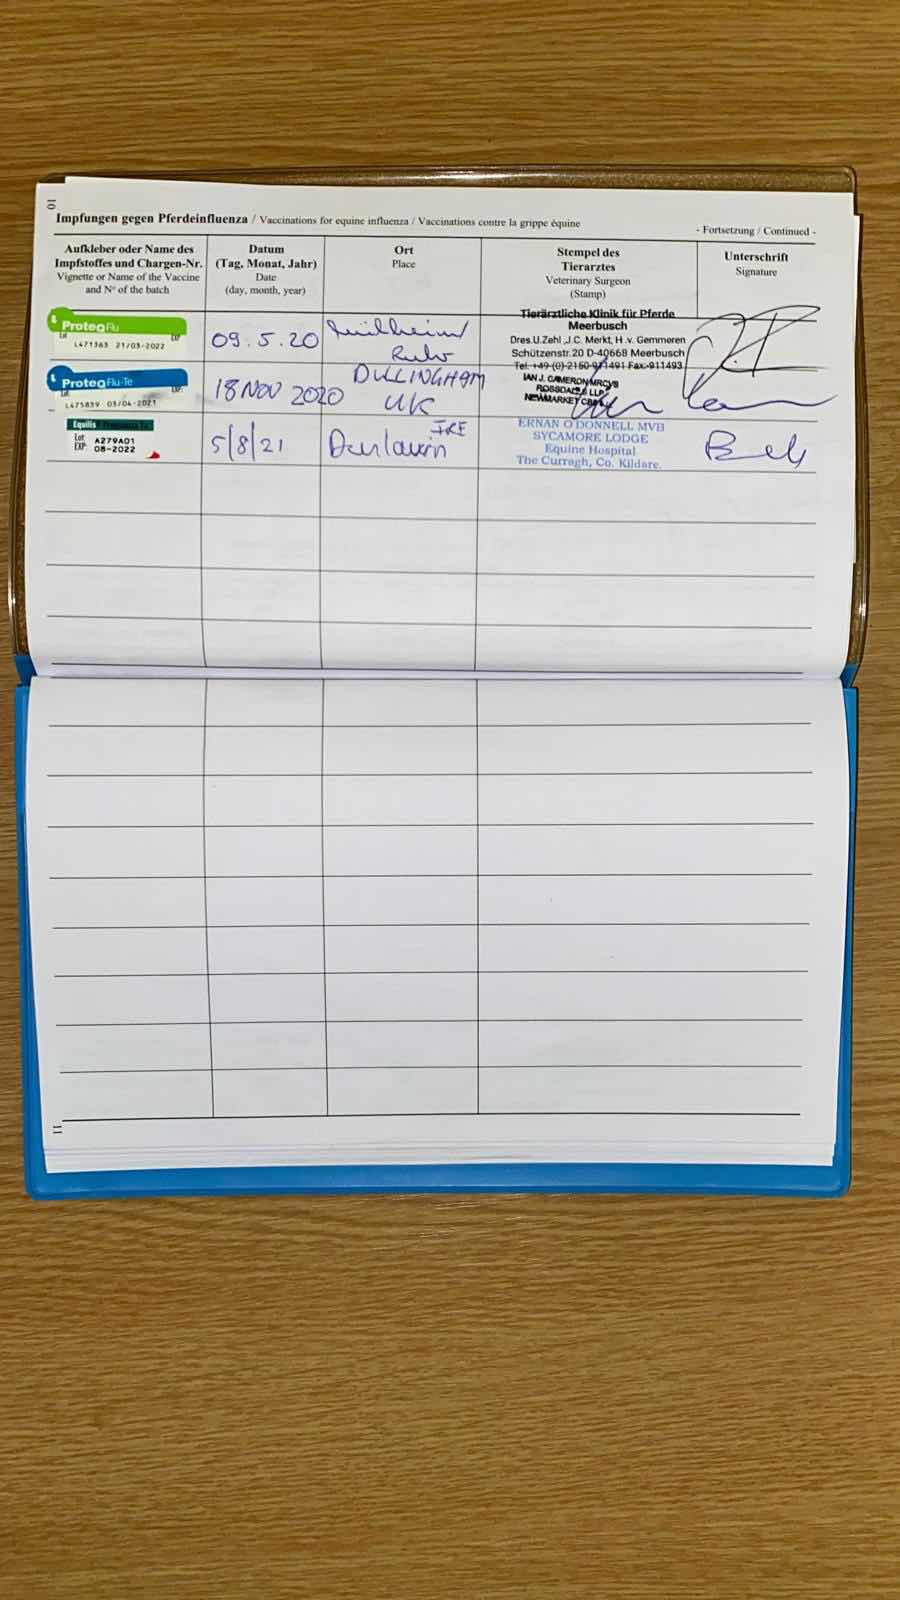 10
Impfungen gegen Pferdeinfluenza / Vaccinations for equine influenza / Vaccinations contre la grippe équine
- Fortsetzung / Continued -
Aufkleber oder Name des
Impfstoffes und Chargen-Nr.
Vignette or Name of the Vaccine
and N° of the batch
Datum
(Tag, Monat, Jahr)
Date
(day, month, year)
Ort
Place
Stempel des
Tierarztes
Veterinary Surgeon
(Stamp)
Unterschrift
Signature
ProteqFlu
Lot EXP
L471363 21/03-2022
09.5.20
Mülheim/
Ruhr
Tierärztliche Klinik für Pferde
Meerbusch
Dres.U.Zehl ,J.C. Merkt, H .v. Gemmeren
Schützenstr.20 D-40668 Meerbusch
Tel. +49-(0)-2150-911491 Fax:-911493
ProteqFlu-Te
Lot EXP:
L475839 03/04-2021
18 NOV 2020
DULLINGHAM
UK
IAN J. CAMERON MRCVS
ROSSDALES LLP
NEWMARKET
Equilis
Lot A279A01
EXP: 08-2022
5/8/21
IRE
ERNAN O'DONNELL MVB
SYCAMORE LODGE
Equine Hospital
The Curragh, Co. Kildare.
11